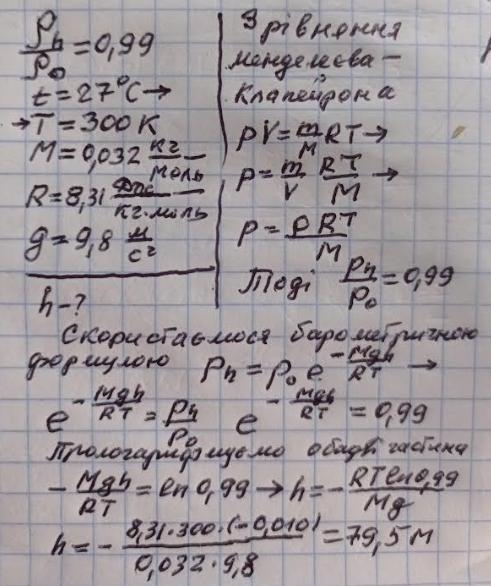 ρₕ/ρ₀ = 0,99
t = 27°C →
→ T = 300 K
M = 0,032 кг/моль
R = 8,31 Дж/кг·моль
g = 9,8 м/с²
h - ?
З рівняння
менделєєва –
Клапейрона
pV = m/M RT →
p = m/V RT/M →
p = ρRT/M
Тоді pₕ/p₀ = 0,99
Скористаємося барометричною
формулою pₕ = p₀ e^(-Mgh/RT) →
e^(-Mgh/RT) = pₕ/p₀ e^(-Mgh/RT) = 0,99
Прологарифмуємо обидві частина
-Mgh/RT = ln 0,99 → h = - RT ln 0,99/Mg
h = - 8,31·300·(-0,010)/0,032·9,8 = 79,5 м